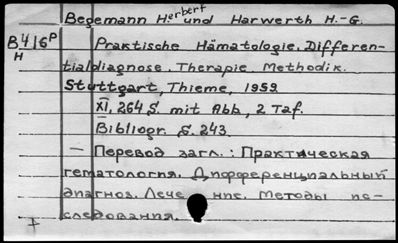 Begemann Herbert und Harwerth H.-G.
B416P Praktische Hämatologie. Differen-
H
tialdiagnose, Therapie, Methodik.
Stuttgart, Thieme, 1959.
XI, 264 S. mit Abb., 2 Taf.
Bibliogr. S. 243.
— Перевод загл.: Практическая
гематология. Дифференциальный
диагноз. Лече ние. Методы ис-
следования.
+